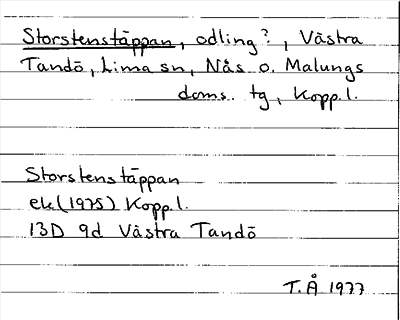 Storstenstäppan, odling?, Västra
Tandö, Lima sn, Nås o. Malungs
doms. tg, Kopp. l.
Storstenstäppan
ek (1975) Kopp. l.
13D 9d Västra Tandö
T.Å 1977